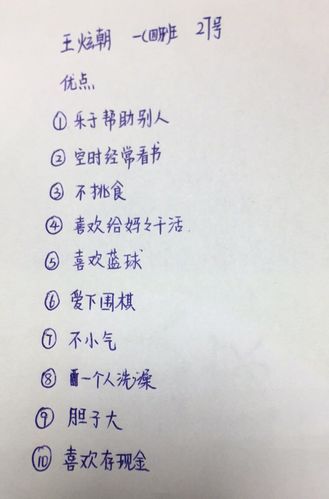 王炫朝 一(四)班 27号
优点
①乐于帮助别人
②空时经常看书
③不挑食
④喜欢给妈々干活
⑤喜欢蓝球
⑥爱下围棋
⑦不小气
⑧一个人洗澡
⑨胆子大
⑩喜欢存现金